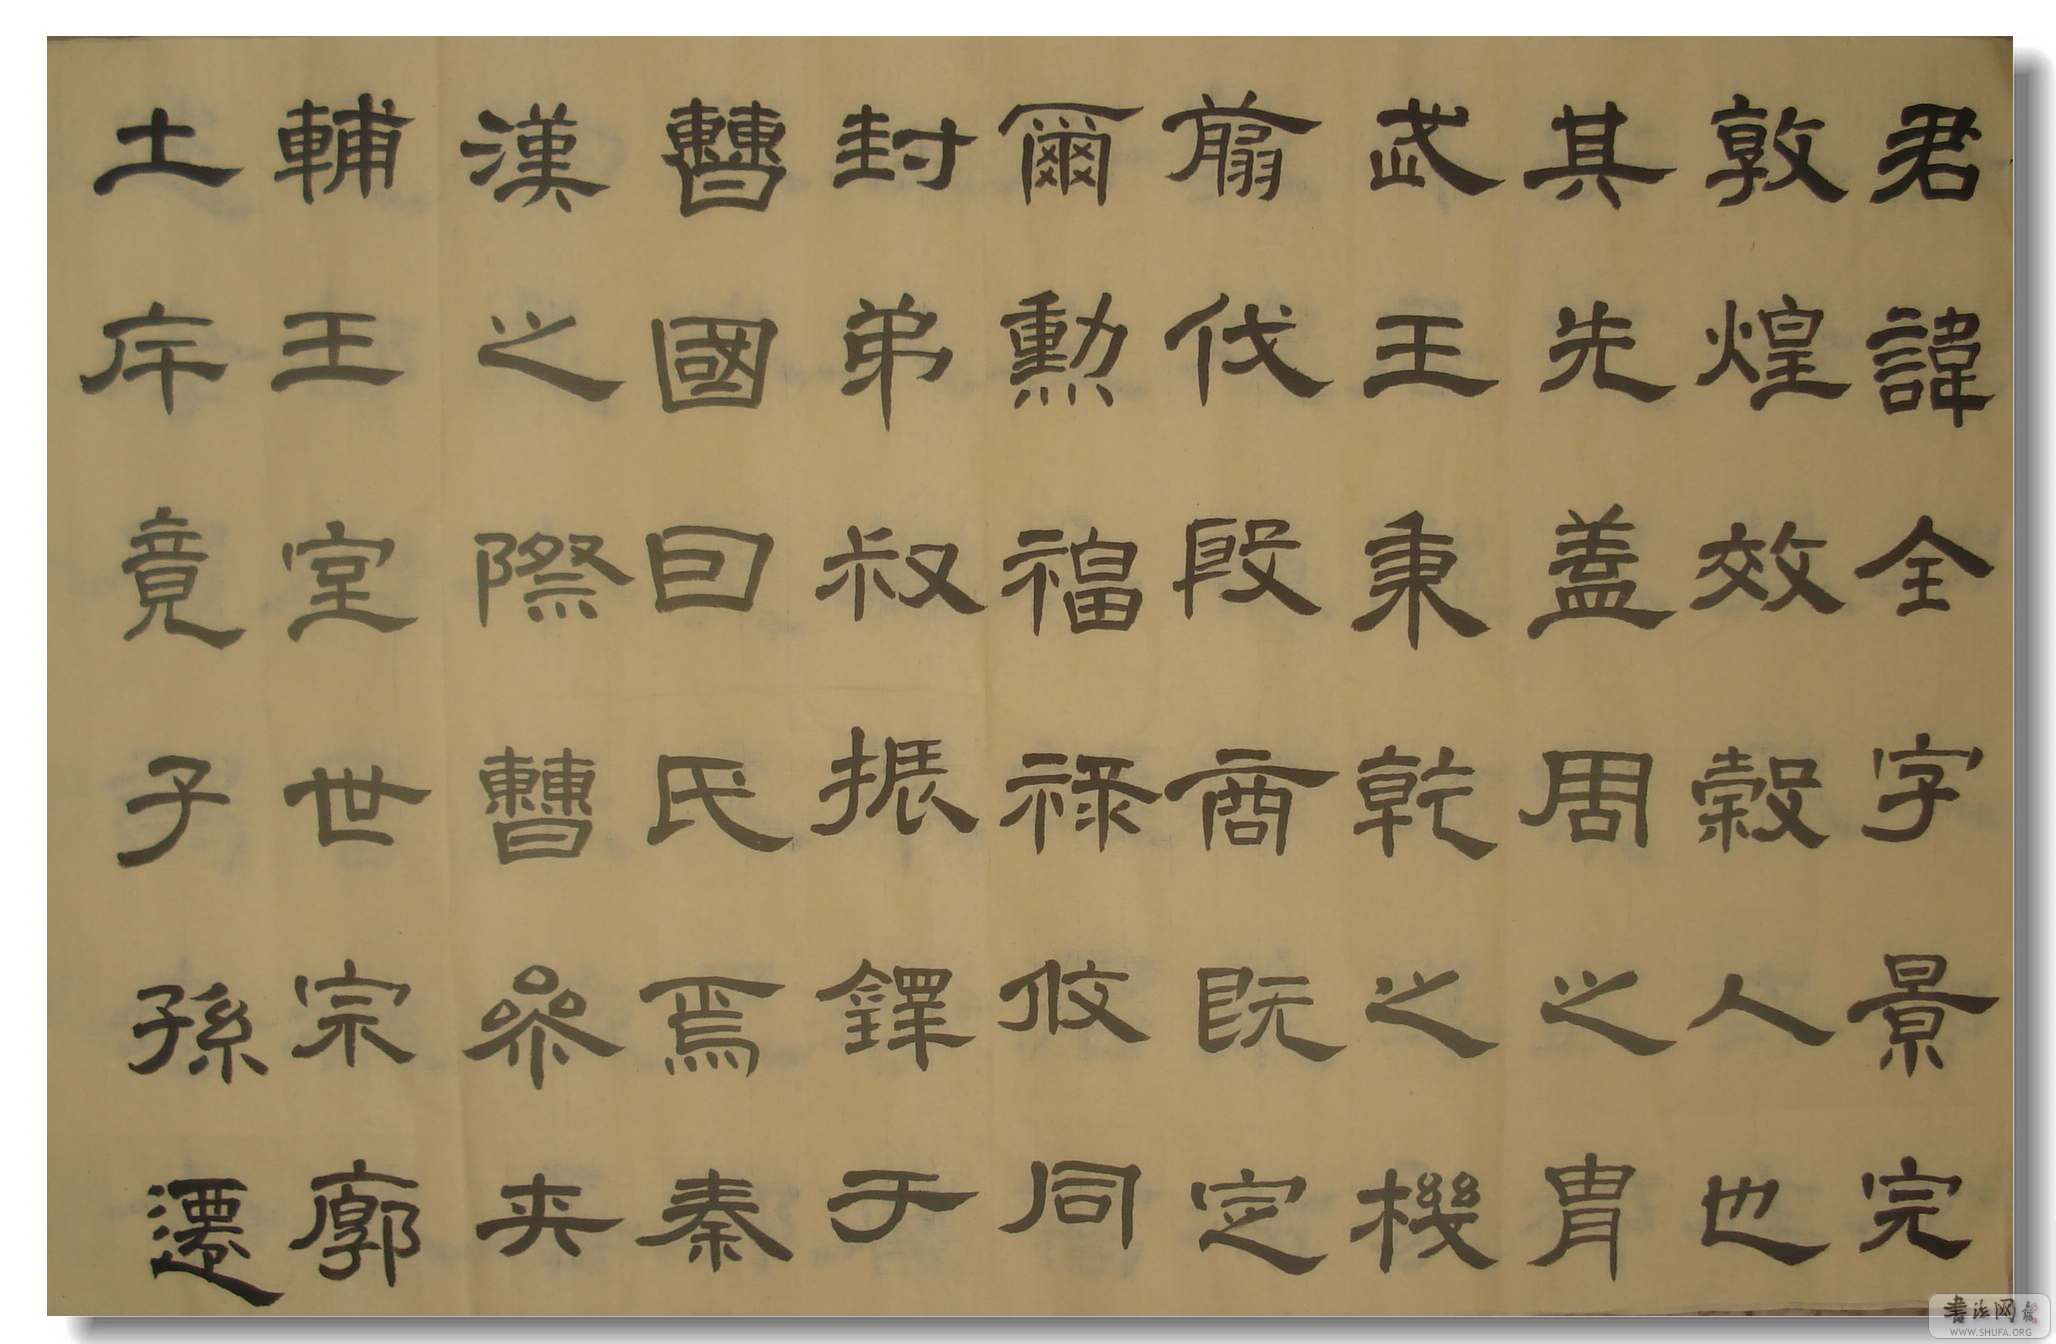 君諱全字景完
敦煌效穀人也
其先蓋周之胄
武王秉乾之機
翦伐殷商既定
爾勳福祿攸同
封弟叔振鐸于
曹國因氏焉秦
漢之際曹參夾
輔王室世宗廓
土斥竟子孫遷
書法网
WWW.SHUFA.ORG